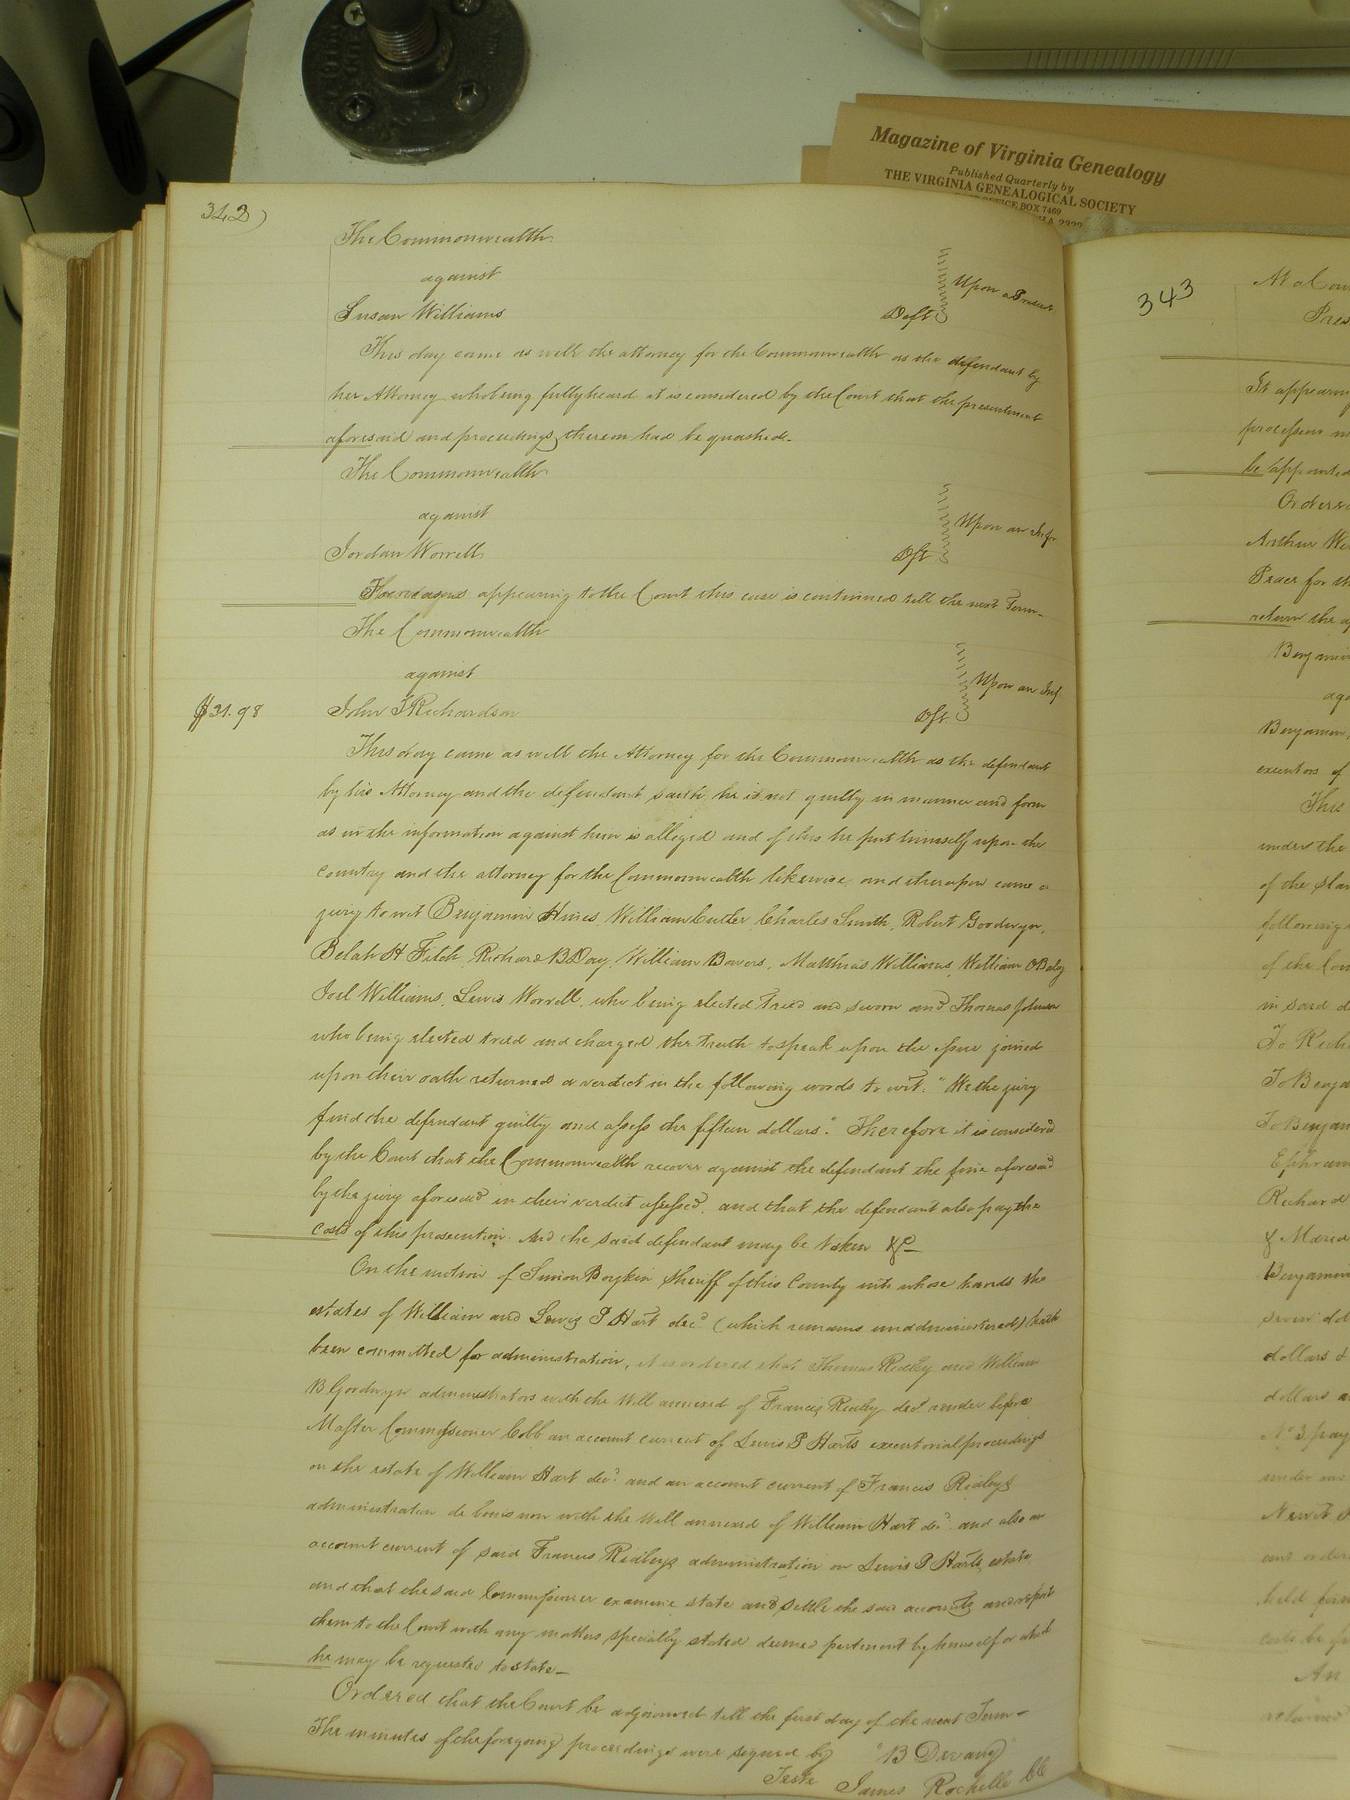 Magazine of Virginia Genealogy
Published Quarterly by
THE VIRGINIA GENEALOGICAL SOCIETY
OFFICE BOX 7469
342)
The Commonwealth
against
Susan Williams Deft Upon a Present
This day came as well the attorney for the Commonwealth as the defendant by
her Attorney who being fully heard it is considered by the Court that the presentment
aforesaid and proceedings thereon had be quashed.
The Commonwealth
against
Jordan Worrell Dft Upon an Infn
For reasons appearing to the Court this case is continued till the next Term
The Commonwealth
against
$31.98 John T Richardson Dft Upon an Inf
This day came as well the Attorney for the Commonwealth as the defendant
by his Attorney and the defendant saith he is not guilty in manner and form
as in the information against him is alleged and of this he put himself upon the
country and the attorney for the Commonwealth likewise, and thereupon came a
jury to wit Benjamin Hines, William Cutler, Charles Smith, Robert Goodwyn,
Belah H Fitch, Richard B Day, William Bowers, Matthias Williams, William
Joel Williams, Lewis Worrell, who being elected tried and sworn and Thomas Johnson
who being elected tried and charged the truth to speak upon the issue joined
upon their oath returned a verdict in the following words to wit: "We the jury
find the defendant guilty and assess the fifteen dollars". Therefore it is considered
by the Court that the Commonwealth recover against the defendant the fine aforesaid
by the jury aforesaid in their verdict assessed, and that the defendant also pay the
costs of this prosecution. And the said defendant may be taken &c
On the motion of Simon Boykin Sheriff of this County into whose hands the
estates of William and Lewis P Hart decd (which remains unadministered) hath
been committed for administration, it is ordered that Thomas Ridley and William
B Goodwyn administrators with the Will annexed of Francis Ridley decd render before
Master Commissioner Cobb an account current of Lewis P Harts executorial proceedings
on the estate of William Hart decd and an account current of Francis Ridleys
administration de bonis non with the Will annexed of William Hart decd and also an
account current of said Francis Ridleys administration on Lewis P Harts estate
and that the said Commissioner examine state and settle the said accounts and report
them to the Court with any matters specially stated deemed pertinent by himself or which
he may be requested to state
Ordered that the Court be adjourned till the first day of the next Term
The minutes of the foregoing proceedings were signed by "B Devany"
Teste James Rochelle Clk
343
At a Cou
Pres
It appearing
be appointed
Ordered
Arthur
return the
Benjamin
Benjamin
executors of
This
under the
of the
following
of the
in said
To
To Benja
To Benjam
Ephraim
Richard
Benjamin
seven
dollars
dollars
pay
An
returned